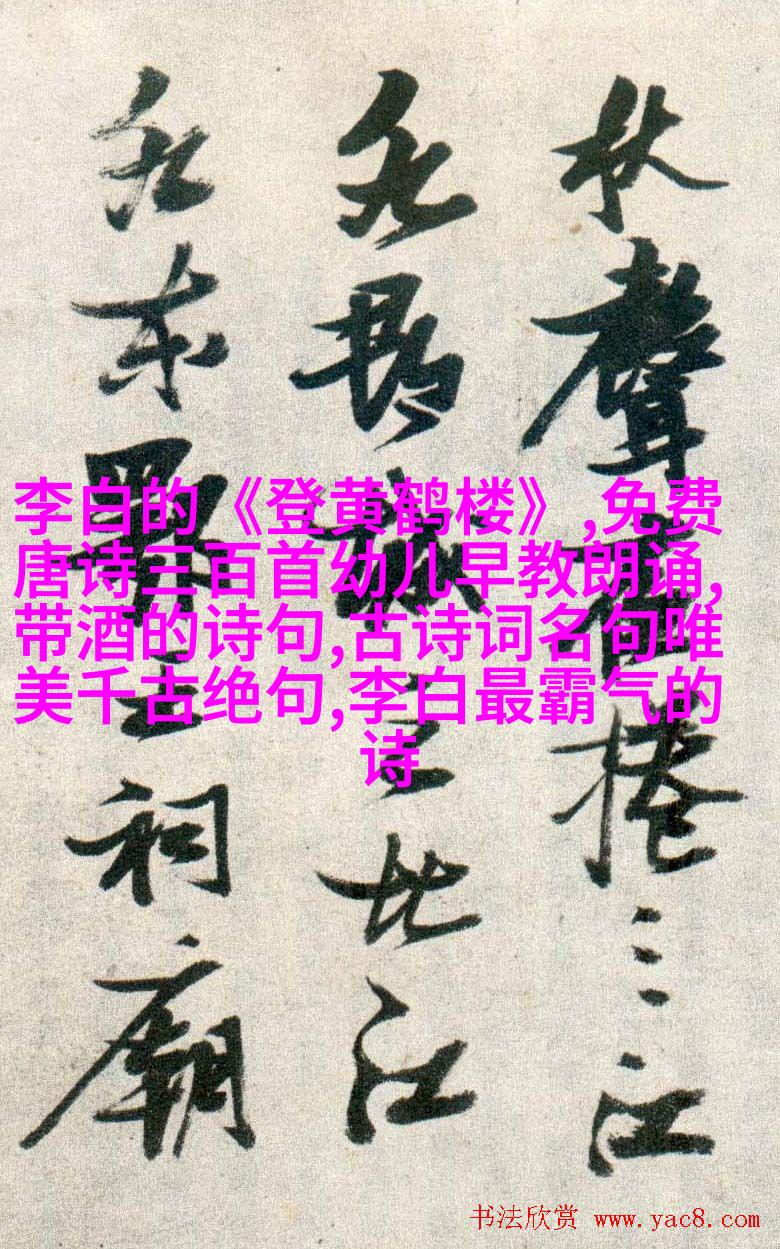 秋聲捲三江
北江
东祠廟
李白的《登黄鹤楼》,免费
唐诗三百首幼儿早教朗诵,
带酒的诗句,古诗词名句唯
美千古绝句,李白最霸气的
诗
书法欣赏 www.yac8.com